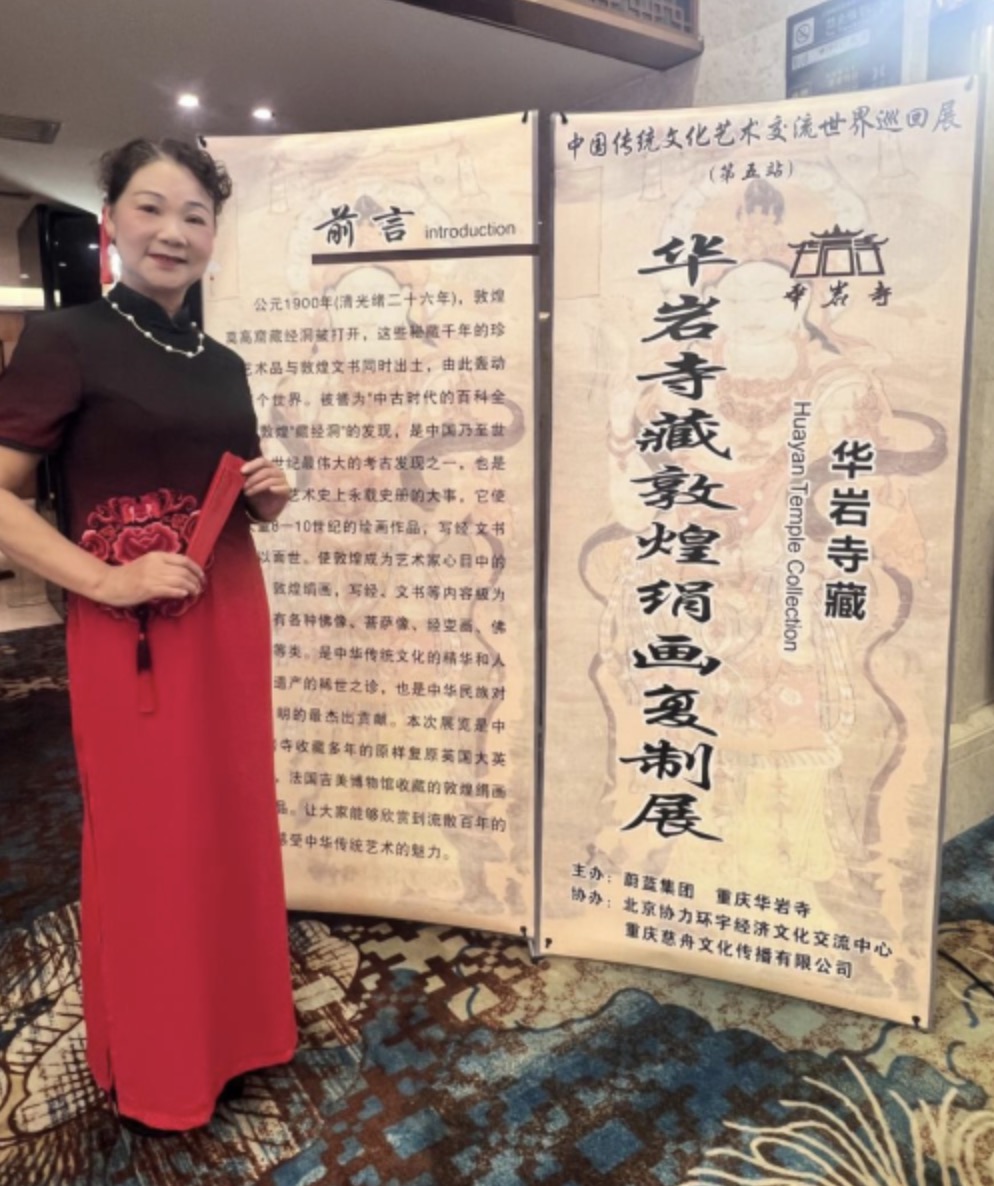 前言 introduction
公元1900年(清光绪二十六年)，敦煌
莫高窟藏经洞被打开，这些秘藏千年的珍
艺术品与敦煌文书同时出土，由此轰动
个世界。被誉为"中古时代的百科全
敦煌"藏经洞"的发现，是中国乃至世
世纪最伟大的考古发现之一，也是
艺术史上永载史册的大事。它使
8—10世纪的绘画作品，写经文书
以面世。使敦煌成为艺术家心目中的
敦煌绢画，写经、文书等内容极为
有各种佛像、菩萨像、经变画、佛
等类。是中华传统文化的精华和人
遗产的稀世之诊，也是中华民族对
明的最杰出贡献。本次展览是中
寺收藏多年的原样复原英国大英
，法国吉美博物馆收藏的敦煌绢画
品。让大家能够欣赏到流散百年的
感受中华传统艺术的魅力。
中国传统文化艺术交流世界巡回展
(第五站)
华岩寺
华岩寺藏
Huayan Temple Collection
华岩寺藏敦煌绢画复制展
主办：蔚蓝集团 重庆华岩寺
协办：北京协力环宇经济文化交流中心
重庆慈舟文化传播有限公司